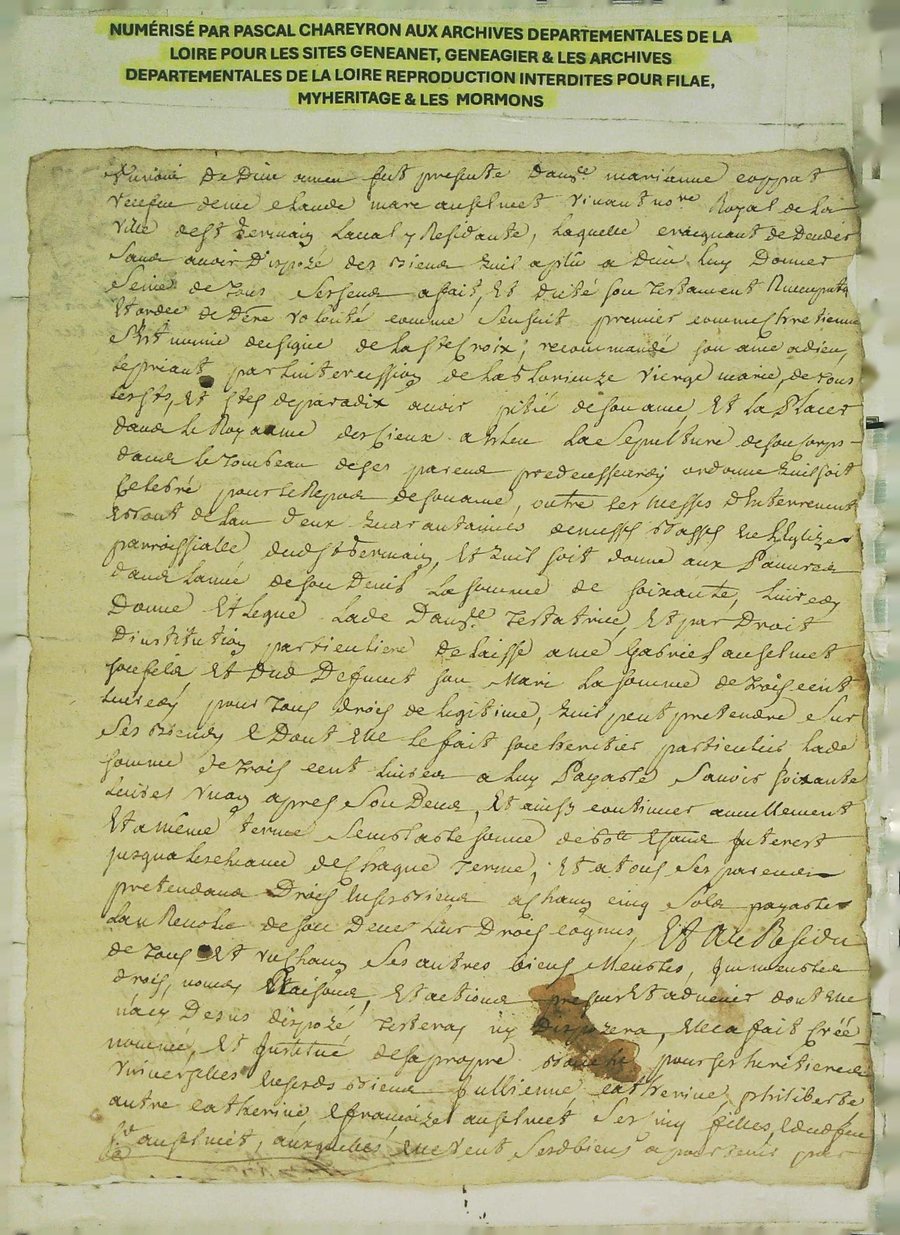 NUMÉRISÉ PAR PASCAL CHAREYRON AUX ARCHIVES DEPARTEMENTALES DE LA
LOIRE POUR LES SITES GENEANET, GENEAGIER & LES ARCHIVES
DEPARTEMENTALES DE LA LOIRE REPRODUCTION INTERDITES POUR FILAE,
MYHERITAGE & LES MORMONS
de Dieu amen fut presente Dausle marianne coppat
veufue de me claude marc anselmet vivant nore Royal de la
ville de st Germain Laval y Residante, laquelle craignant de deceder
sans avoir disposé des biens quil a plu a Dieu luy Donner
de tous ses sens a fait, Et dicté son Testament Nuncupatif
Et ordre de dere volonté comme sensuit premier comme chretienne
sest munie du signe de la ste Croix, recommandé son ame a dieu,
le priant par lintercession de la Glorieuze vierge marie, de tous
les sts, Et stes de paradix avoir pitié de son ame, Et la Placer
dans le Royaume des Cieux a Esleu la Sepulture de son Corps
dans le Tombeau de ses parens predecesseurs ordonne quil soit
Celebré pour le Repos de son ame, outre les messes d'Enterrement
Et bout de lan deux quarantaines de messes basses en lEglize
parroissialle dud st Germain, Et quil soit donné aux Pauvres
dans lannée de son Deceds la somme de soixante, Livres
Donne Et legue lade Dausle Testatrice, Et par Droit
Dinstitution particuliere delaissé a me Gabriel anselmet
son fils, Et dud Deffunt son Mari la somme de trois cent
Livres, pour tous droits de legitime, quil peut pretendre sur
ses biens & Dont Elle le fait son heritier particulier lade
somme de trois cent livres a luy Payable savoir soixante
Livres un an apres son Deces, Et ainsy continuer annuellement
Et a même terme semblable somme de 60lt Et sans Interest
jusqua lescheance de chaque terme; Et a tous ses parens
pretendans Droits en ses biens a chacun cinq sols payables
lan Revolu de son Deces leur Droits cognus, Et Au Residu
de tous Et un chacun ses autres biens Meubles, Immeubles
droits, noms Raisons, Et actions presens Et advenir dont Elle
nacy Desus disposé Testera ny disposera, Elle a fait Créé
nommé, Et Institué de sa propre bouche pour ses heritieres
universelles en ses d biens jullienne, catherine, philiberte
autre catherine & francoize anselmet ses cinq filles, & dud feu
sr anselmet, auxquelles Elle veut sesd biens apartenir par